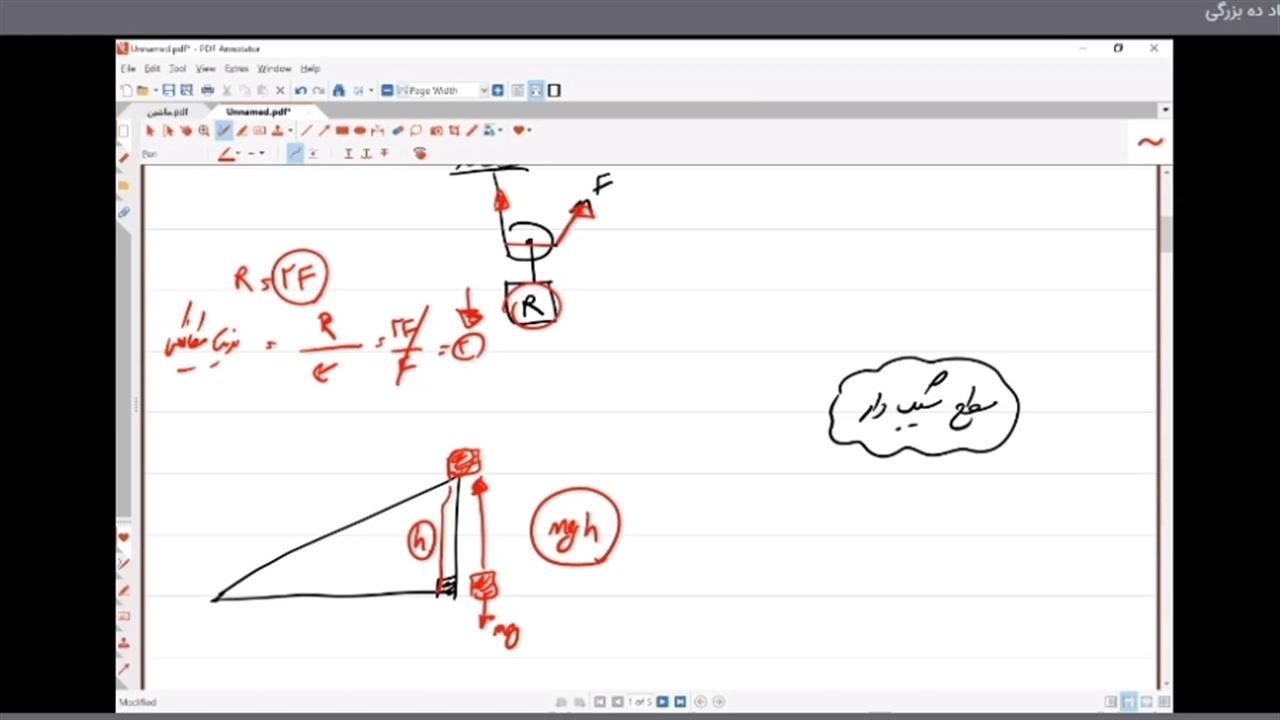 اد ده بزرگی
Unnamed.pdf* - PDF Annotator
File Edit Tool View Extras Window Help
Page Width
ماشین.pdf Unnamed.pdf*
Pen
F
R = ۲F
R
مزیت مکانیکی = R = ۲F = ۲
F
سطح شیب دار
h
mgh
mg
Modified
1 of 5